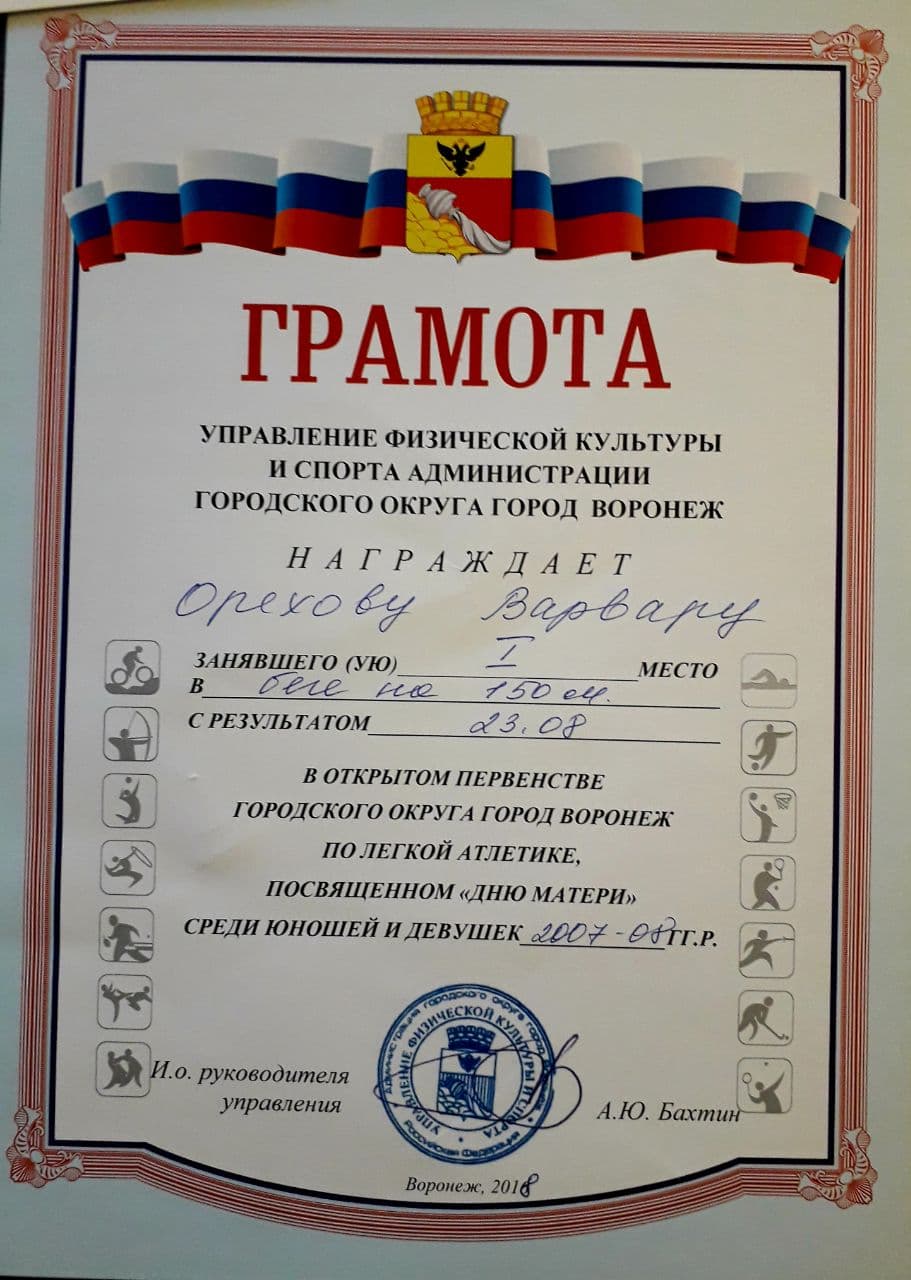 ГРАМОТА
УПРАВЛЕНИЕ ФИЗИЧЕСКОЙ КУЛЬТУРЫ
И СПОРТА АДМИНИСТРАЦИИ
ГОРОДСКОГО ОКРУГА ГОРОД ВОРОНЕЖ
НАГРАЖДАЕТ
Орехову Варвару
ЗАНЯВШЕГО (УЮ) I МЕСТО
В беге на 150 м.
С РЕЗУЛЬТАТОМ 23.08
В ОТКРЫТОМ ПЕРВЕНСТВЕ
ГОРОДСКОГО ОКРУГА ГОРОД ВОРОНЕЖ
ПО ЛЕГКОЙ АТЛЕТИКЕ,
ПОСВЯЩЕННОМ «ДНЮ МАТЕРИ»
СРЕДИ ЮНОШЕЙ И ДЕВУШЕК 2007-08 ГГ.Р.
Администрация городского округа город
УПРАВЛЕНИЕ ФИЗИЧЕСКОЙ КУЛЬТУРЫ И СПОРТА
Российская Федерация
И.о. руководителя
управления
А.Ю. Бахтин
Воронеж, 2018